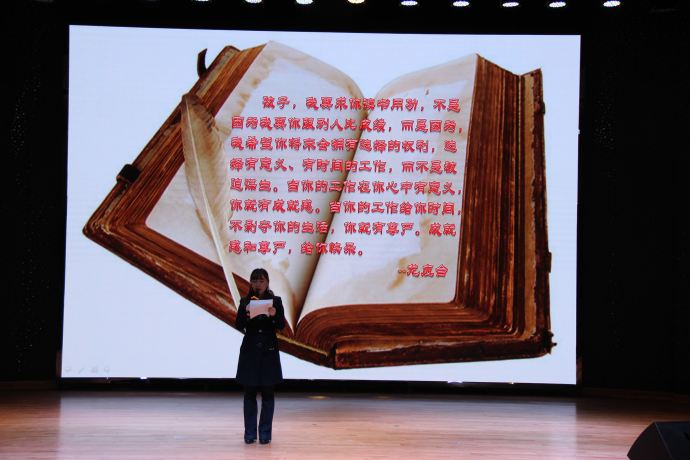 孩子，我要求你读书用功，不是
因为我要你跟别人比成绩，而是因为，
我希望你将来会拥有选择的权利，选
择有意义、有时间的工作，而不是被
迫谋生。当你的工作在你心中有意义，
你就有成就感。当你的工作给你时间，
不剥夺你的生活，你就有尊严。成就
感和尊严，给你快乐。
--龙应台